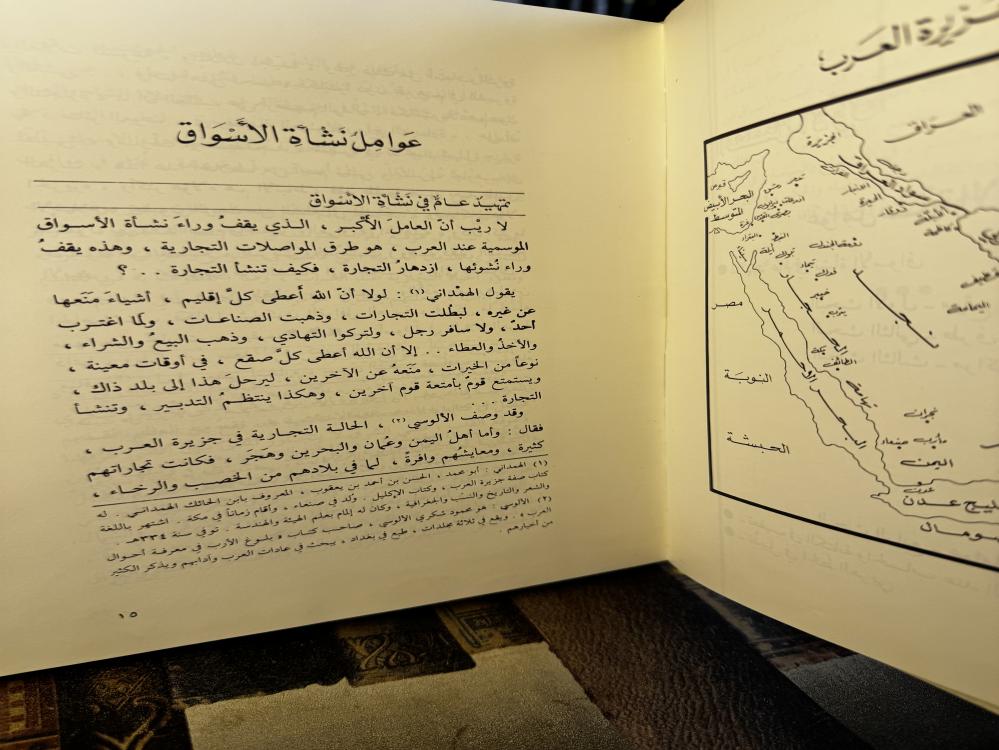 جزيرة العرب
العراق
الجزيرة
البحر الأبيض
المتوسط
قبرص
مصر
النوبة
الحبشة
نجد
الحجاز
البحر الأحمر
تهامة
اليمامة
تبوك
خيبر
يثرب
مكة
الطائف
نجران
مأرب
صنعاء
اليمن
عدن
خليج عدن
صومال
عَوامِل نَشأة الأَسْوَاق
تمهيد عام في نَشْأة الأسْوَاق
لا ريْبَ أنّ العاملَ الأكْبر ، الذي يقفُ وراءَ نشأة الأسواق
الموسمية عند العرب ، هو طرق المواصلات التجارية ، وهذه يقفُ
وراء نُشوئها ، ازدهارُ التجارة ، فكيف تنشأ التجارة . . ؟
يقول الهمْداني (١) : لولا أنّ الله أعطى كلَّ إقليم ، أشياءَ مَنَعها
عن غيره ، لبطُلت التجارات ، وذهبت الصناعات ، ولما اغترب
أحدٌ ، ولا سافر رجل ، ولتركوا التهادي ، وذهب البيعُ والشراء ،
والأخذُ والعطاء . . إلا أن الله أعطى كلَّ صقع ، في أوقات معينة ،
نوعاً من الخيرات ، مَنَعهُ عن الآخرين ، ليرحلَ هذا إلى بلد ذاك ،
ويستمتع قومٌ بأمتعة قوم آخرين ، وهكذا ينتظمُ التدبير ، وتنشأ
التجارة . . .
وقد وصف الآلوسي (٢) ، الحالة التجارية في جزيرة العرب ،
فقال : وأما أهلُ اليمن وعُمان والبحرين وهَجَر ، فكانت تجاراتهم
كثيرة ، ومعايشُهم وافرةً ، لما في بلادهم من الخصب والرخاء ،
(١) الهمداني : أبو محمد ، الحسن بن أحمد بن يعقوب ، المعروف بابن الحائك الهمداني . له
كتاب صفة جزيرة العرب ، وكتاب الإكليل . وُلد في صنعاء ، وأقام زماناً في مكة . اشتهر باللغة
والشعر والتاريخ والنسب والجغرافية ، وكان له إلمام بعلم الهيئة والهندسة . توفي سنة ٣٣٤هـ .
(٢) الآلوسي : هو محمود شكري الآلوسي ، صاحب كتاب « بلوغ الأرب في معرفة أحوال
العرب » . ويقع في ثلاثة مجلدات ، طبع في بغداد ، يبحث في عادات العرب وآدابهم ويذكر الكثير
من أخبارهم .
١٥